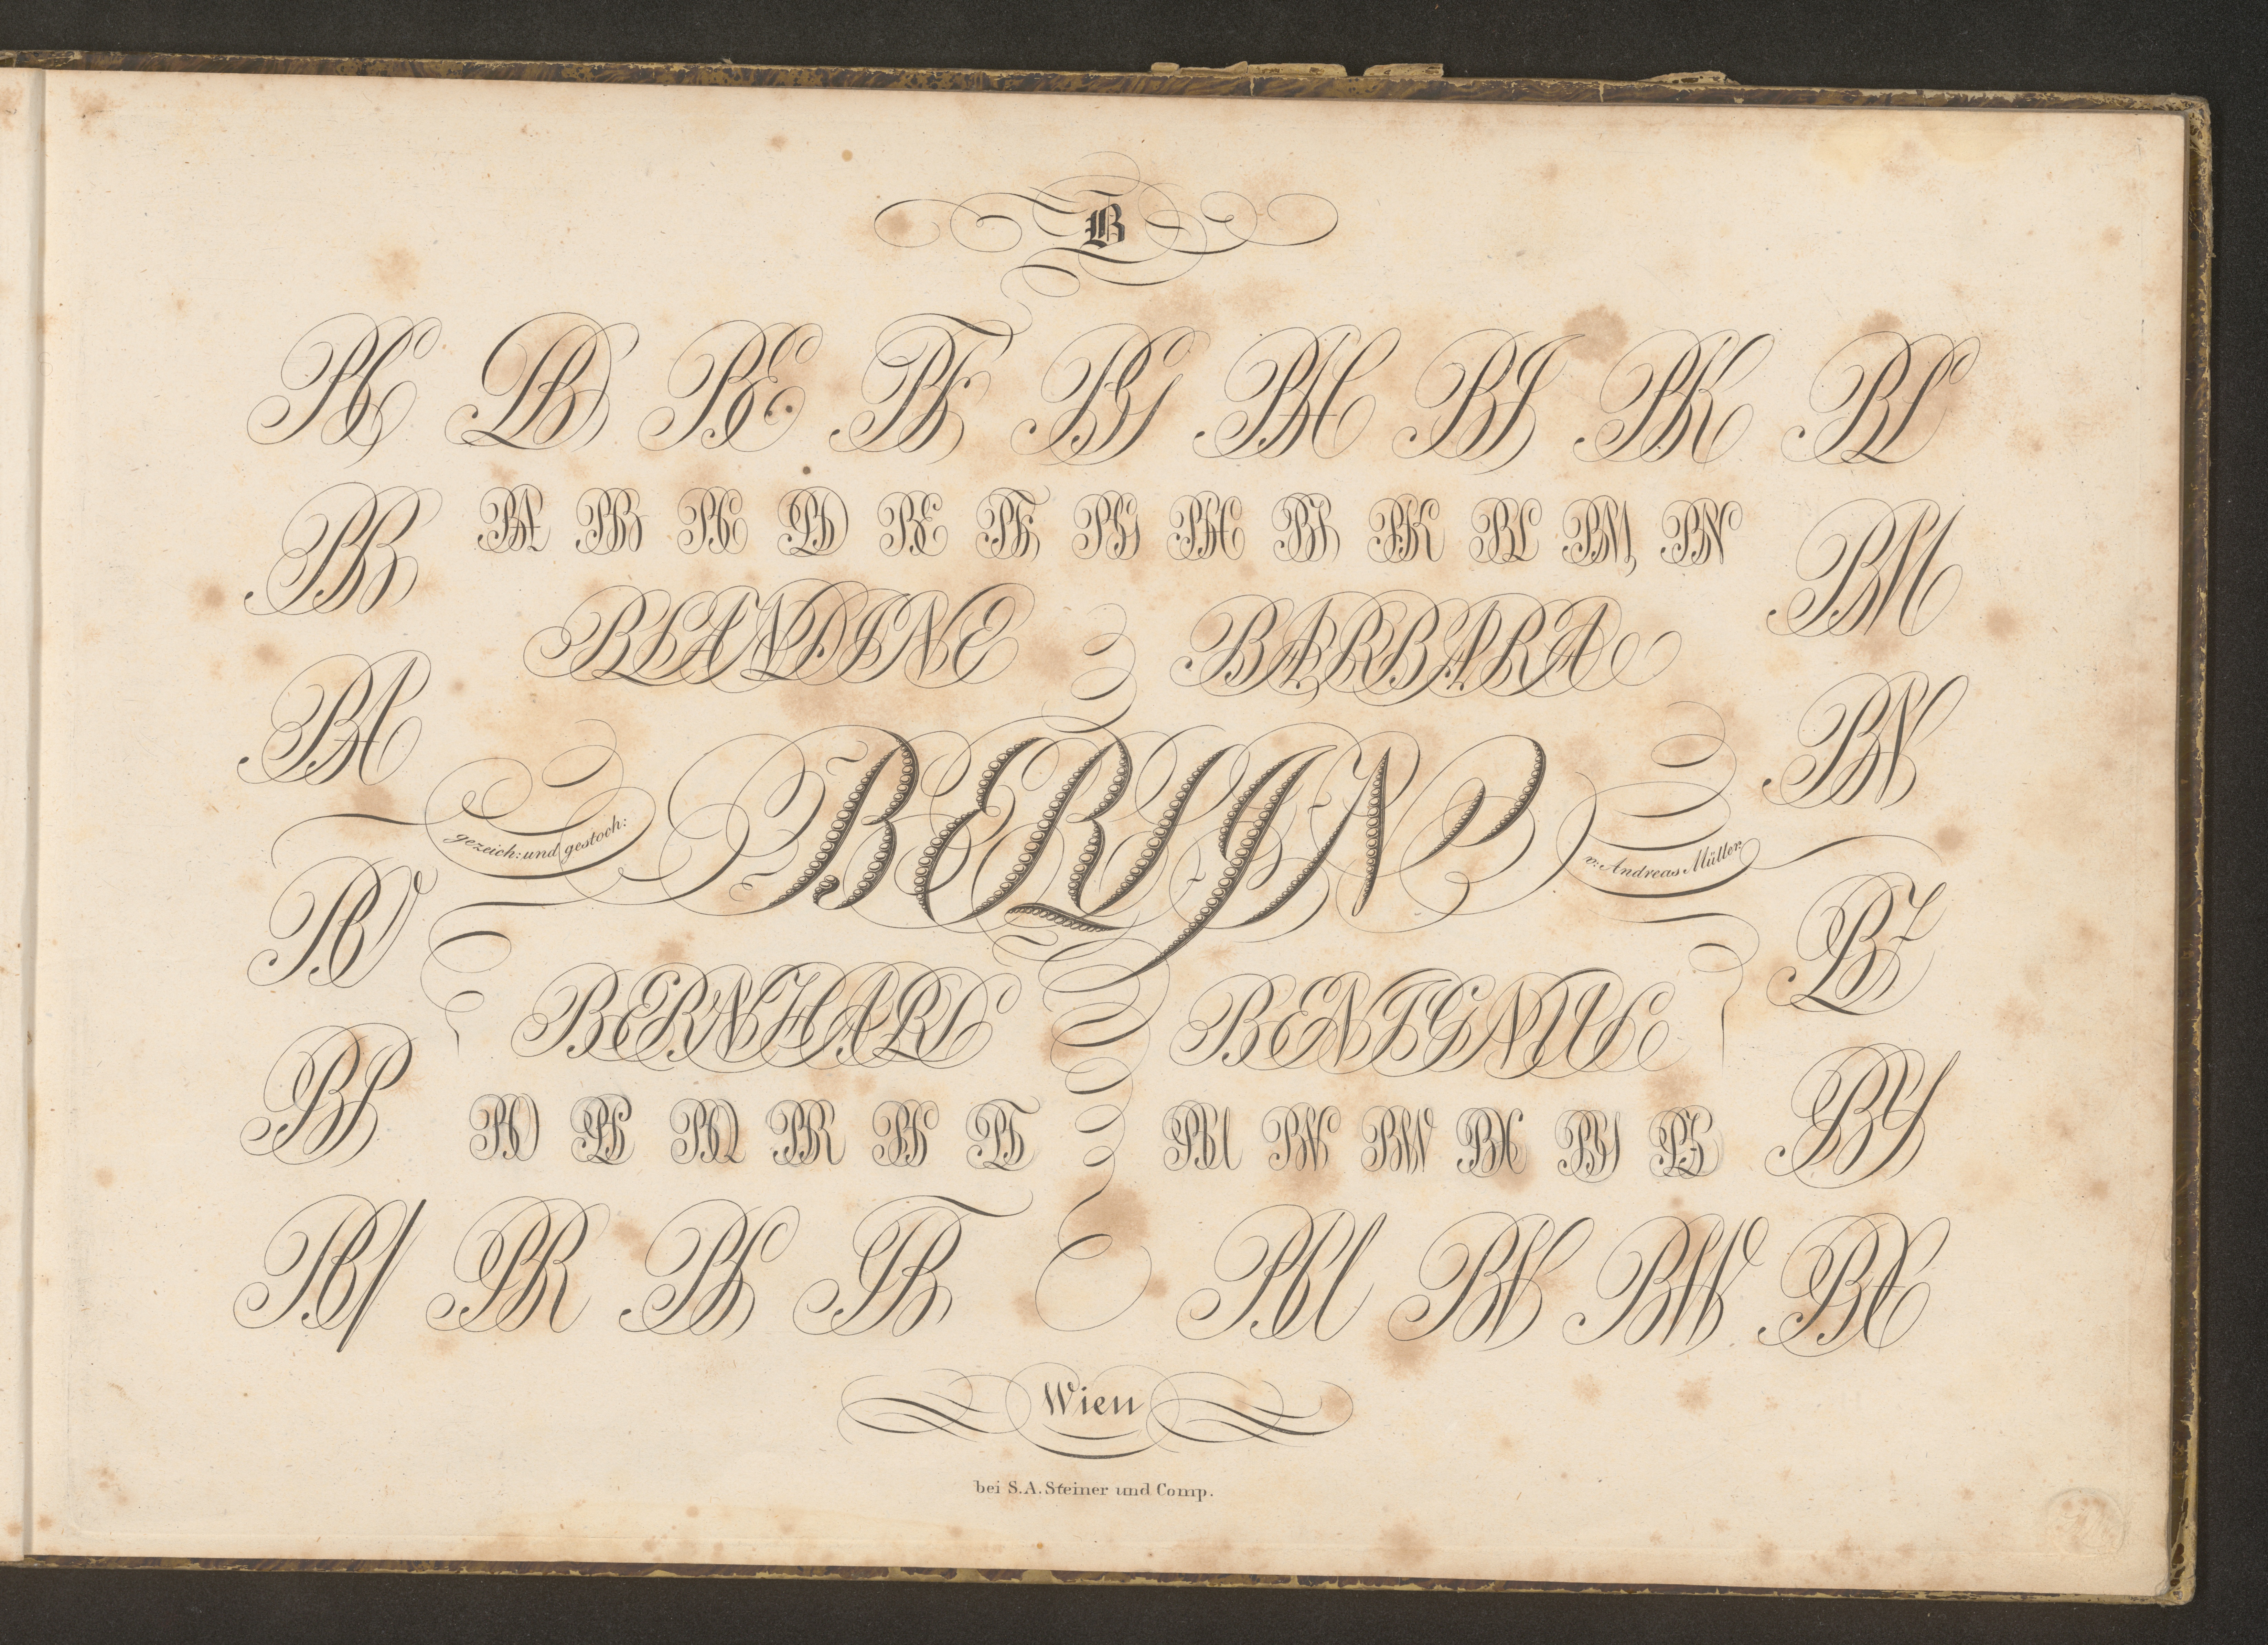 B
BC BD BE BF BG BH BI BK BL
BB BA BB BC BD BE BF BG BH BI BK BL BM BN BM
BLANDINE BARBARA
BA BN
BERLIN
gezeich: und gestoch: v: Andreas Müller
BO BZ
BERNHARD BENIGNUS
BP BO BP BQ BR BS BT BU BV BW BX BY BZ BY
BQ BR BS BT BU BV BW BX
Wien
bei S.A. Steiner und Comp.